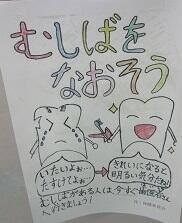 むしばを
なおそう
いたいよぉ…
たすけてよぉ…
きれいになると
明るい気分だね!
むしばがある人は、今すぐ歯医者さん
へ行きましょう!